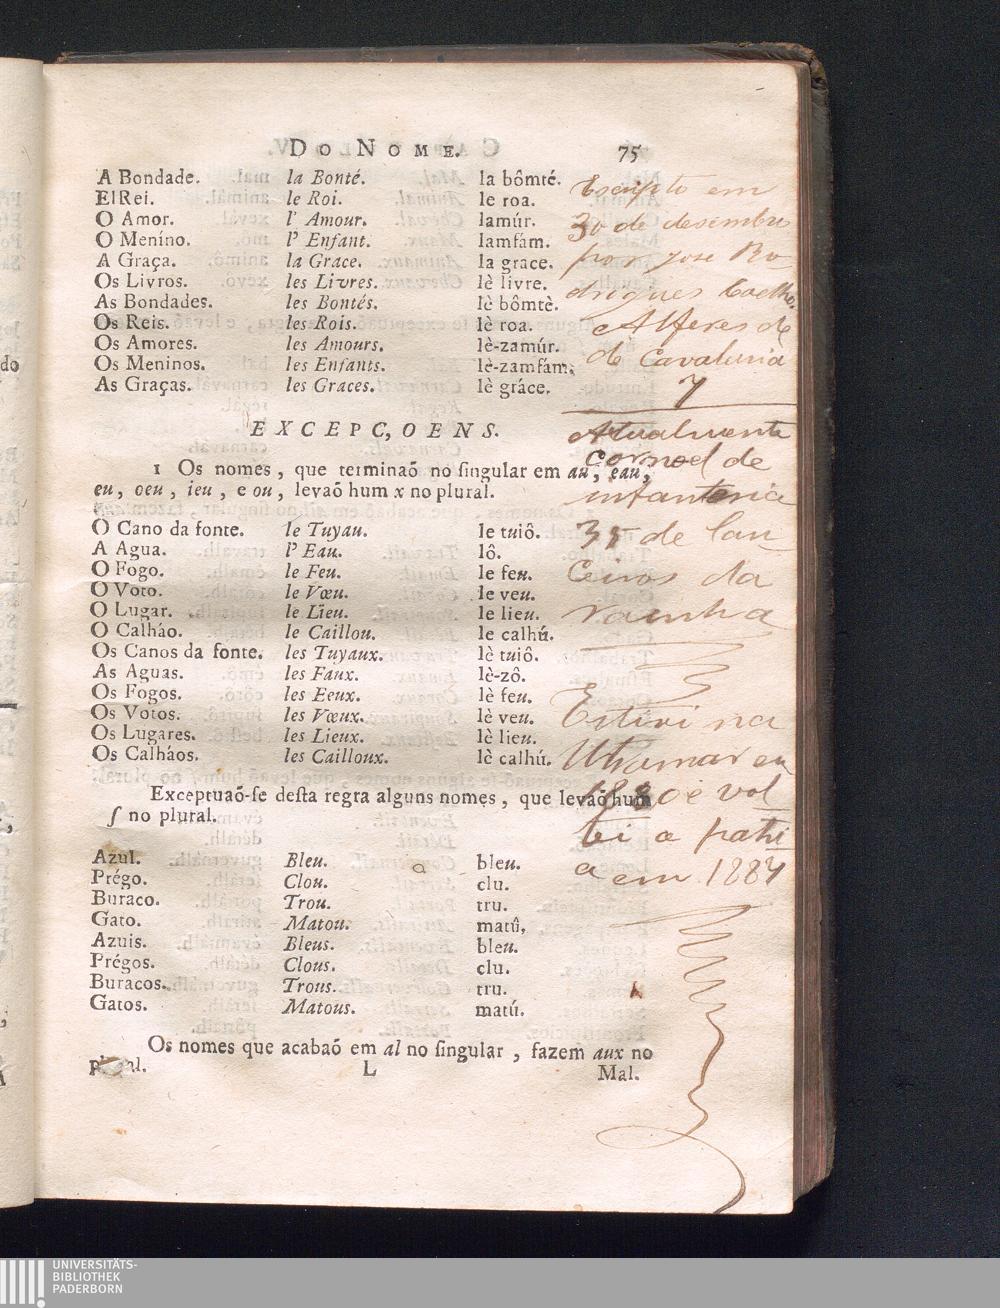 Do Nome. 75
A Bondade. la Bonté. la bômté.
El Rei. le Roi. le roa.
O Amor. l' Amour. lamúr.
O Meníno. l' Enfant. lamfám.
A Graça. la Grace. la grace.
Os Livros. les Livres. lè livre.
As Bondades. les Bontés. lè bômtè.
Os Reis. les Rois. lè roa.
Os Amores. les Amours. lè-zamúr.
Os Meninos. les Enfants. lè-zamfám.
As Graças. les Graces. lè gráce.
EXCEPC,OENS.
1 Os nomes, que terminaõ no ſingular em au, eau,
eu, oeu, ieu, e ou, levaõ hum x no plural.
O Cano da fonte. le Tuyau. le tuiô.
A Agua. l' Eau. lô.
O Fogo. le Feu. le feu.
O Voto. le Vœu. le veu.
O Lugar. le Lieu. le lieu.
O Calháo. le Caillou. le calhú.
Os Canos da fonte. les Tuyaux. lè tuiô.
As Aguas. les Faux. lè-zô.
Os Fogos. les Eeux. lè feu.
Os Votos. les Vœux. lè veu.
Os Lugares. les Lieux. lè lieu.
Os Calháos. les Cailloux. lè calhú.
Exceptuaõ-ſe deſta regra alguns nomes, que levaõ hum
ſ no plural.
Azul. Bleu. bleu.
Prégo. Clou. clu.
Buraco. Trou. tru.
Gato. Matou. matû.
Azuis. Bleus. bleu.
Prégos. Clous. clu.
Buracos. Trous. tru.
Gatos. Matous. matú.
Os nomes que acabaõ em al no ſingular, fazem aux no
L Mal.
Escripto em
30 de desembro
por Jose Ro-
drigues Coelho.
Alferes de
de Cavalaria
7
Atualmente
Coronel de
infantaria
35 de lan
Ceiros da
rainha
Estivi na
Utramar em
1880 e vol
tei a patri
a em 1884
do
UNIVERSITÄTS-
BIBLIOTHEK
PADERBORN